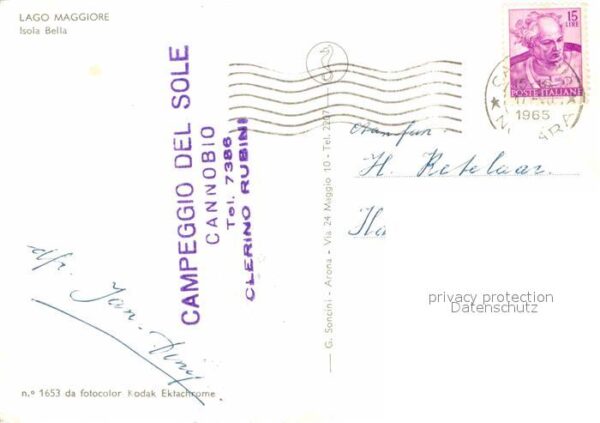 LAGO MAGGIORE
Isola Bella
CAMPEGGIO DEL SOLE
CANNOBIO
Tel. 7386
CLERINO RUBINI
G. Soncini - Arona - Via 24 Maggio 10 - Tel. 2207
15
LIRE
POSTE ITALIANE
1965
H. Ketelaar.
privacy protection
Datenschutz
dfr. Jan-Tiny
n.º 1653 da fotocolor Kodak Ektachrome